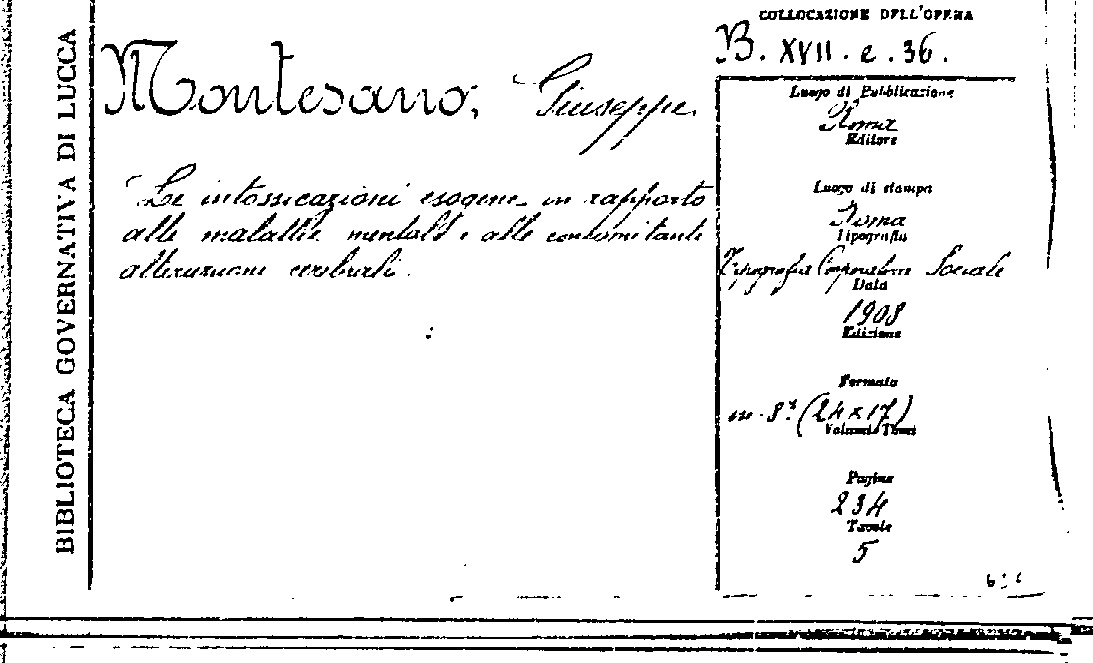 BIBLIOTECA GOVERNATIVA DI LUCCA
Montesano, Giuseppe.
Le intossicazioni esogene in rapporto
alle malattie mentali e alle concomitanti
alterazioni cerebrali.
COLLOCAZIONE DELL'OPERA
B. XVII. e. 36.
Luogo di Pubblicazione
Roma
Editore
Luogo di stampa
Roma
Tipografia
Tipografia Cooperativa Sociale
Data
1908
Edizione
Formato
in-8° (24x17)
Volumi o Tomi
Pagine
234
Tavole
5